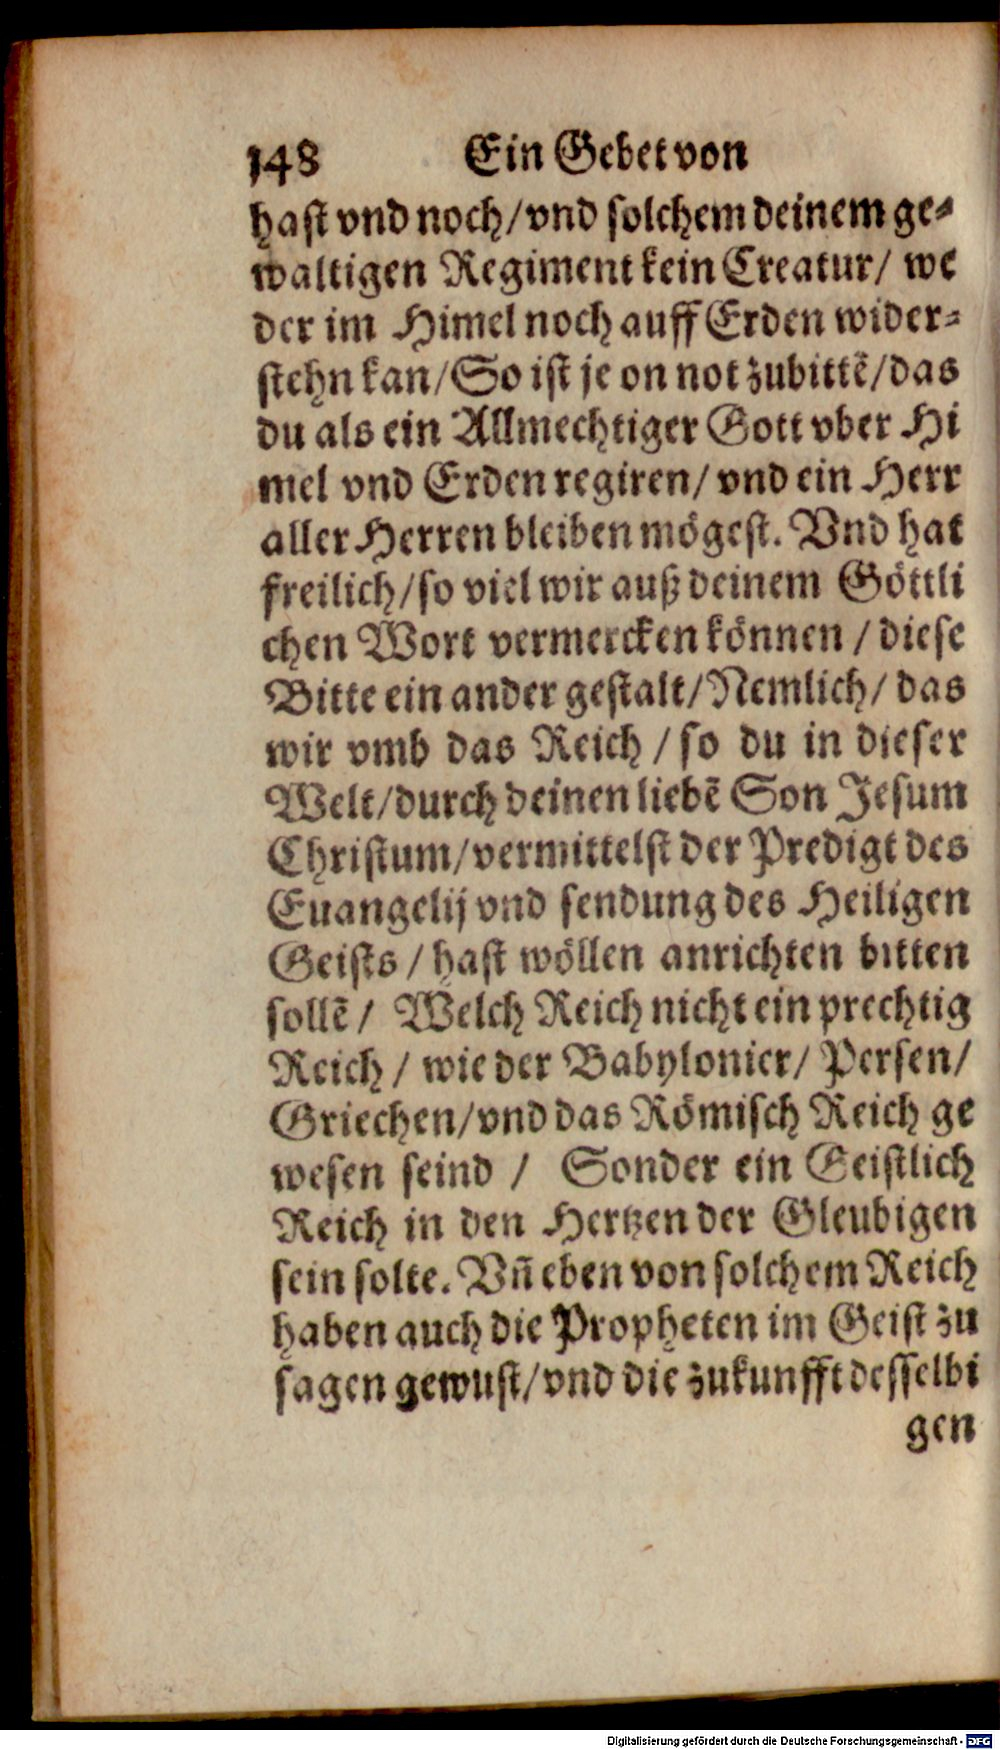 148 Ein Gebet von
hast vnd noch/vnd solchem deinem ge-
waltigen Regiment kein Creatur/ we
der im Himel noch auff Erden wider-
stehn kan/So ist je on not zubittẽ/das
du als ein Allmechtiger Gott vber Hi
mel vnd Erden regiren/ vnd ein Herr
aller Herren bleiben mögest. Vnd hat
freilich/so viel wir auß deinem Göttli
chen Wort vermercken können / diese
Bitte ein ander gestalt/Nemlich/ das
wir vmb das Reich / so du in dieser
Welt/durch deinen liebẽ Son Jesum
Christum/vermittelst der Predigt des
Euangelij vnd sendung des Heiligen
Geists / hast wöllen anrichten bitten
sollẽ / Welch Reich nicht ein prechtig
Reich / wie der Babylonier/ Persen/
Griechen/vnd das Römisch Reich ge
wesen seind / Sonder ein Geistlich
Reich in den Hertzen der Gleubigen
sein solte. Vñ eben von solchem Reich
haben auch die Propheten im Geist zu
sagen gewust/vnd die zukunfft desselbi
gen
Digitalisierung gefördert durch die Deutsche Forschungsgemeinschaft - DFG